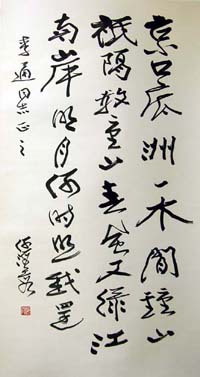 京口瓜洲一水間鍾山
祇隔數重山春風又綠江
南岸明月何時照我還
通同志正之